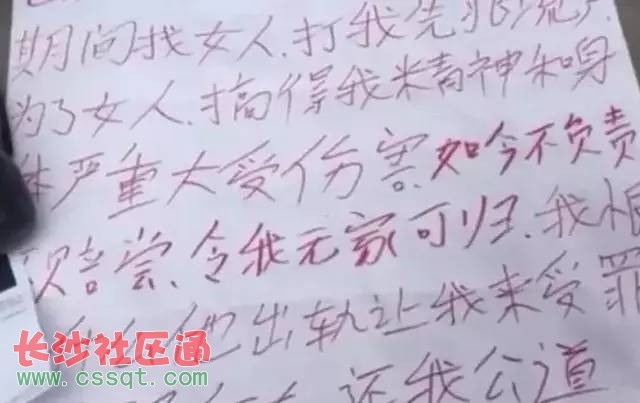 期间找女人.打我先兆流产.
为了女人.搞得我精神和身
体严重大受伤害.如今不负责
赔尝、令我无家可归.我恨
他出轨让我来受罪
还我公道
长沙社区通
www.cssqt.com